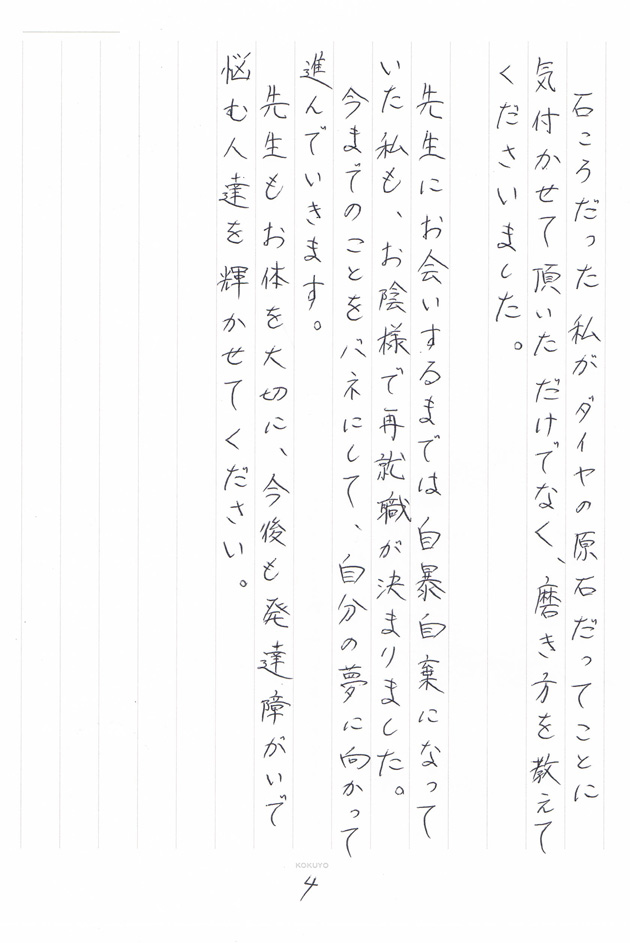 石ころだった私がダイヤの原石だってことに
気付かせて頂いただけでなく、磨き方を教えて
くださいました。
先生にお会いするまでは自暴自棄になって
いた私も、お陰様で再就職が決まりました。
今までのことをバネにして、自分の夢に向かって
進んでいきます。
先生もお体を大切に、今後も発達障がいで
悩む人達を輝かせてください。
KOKUYO
4